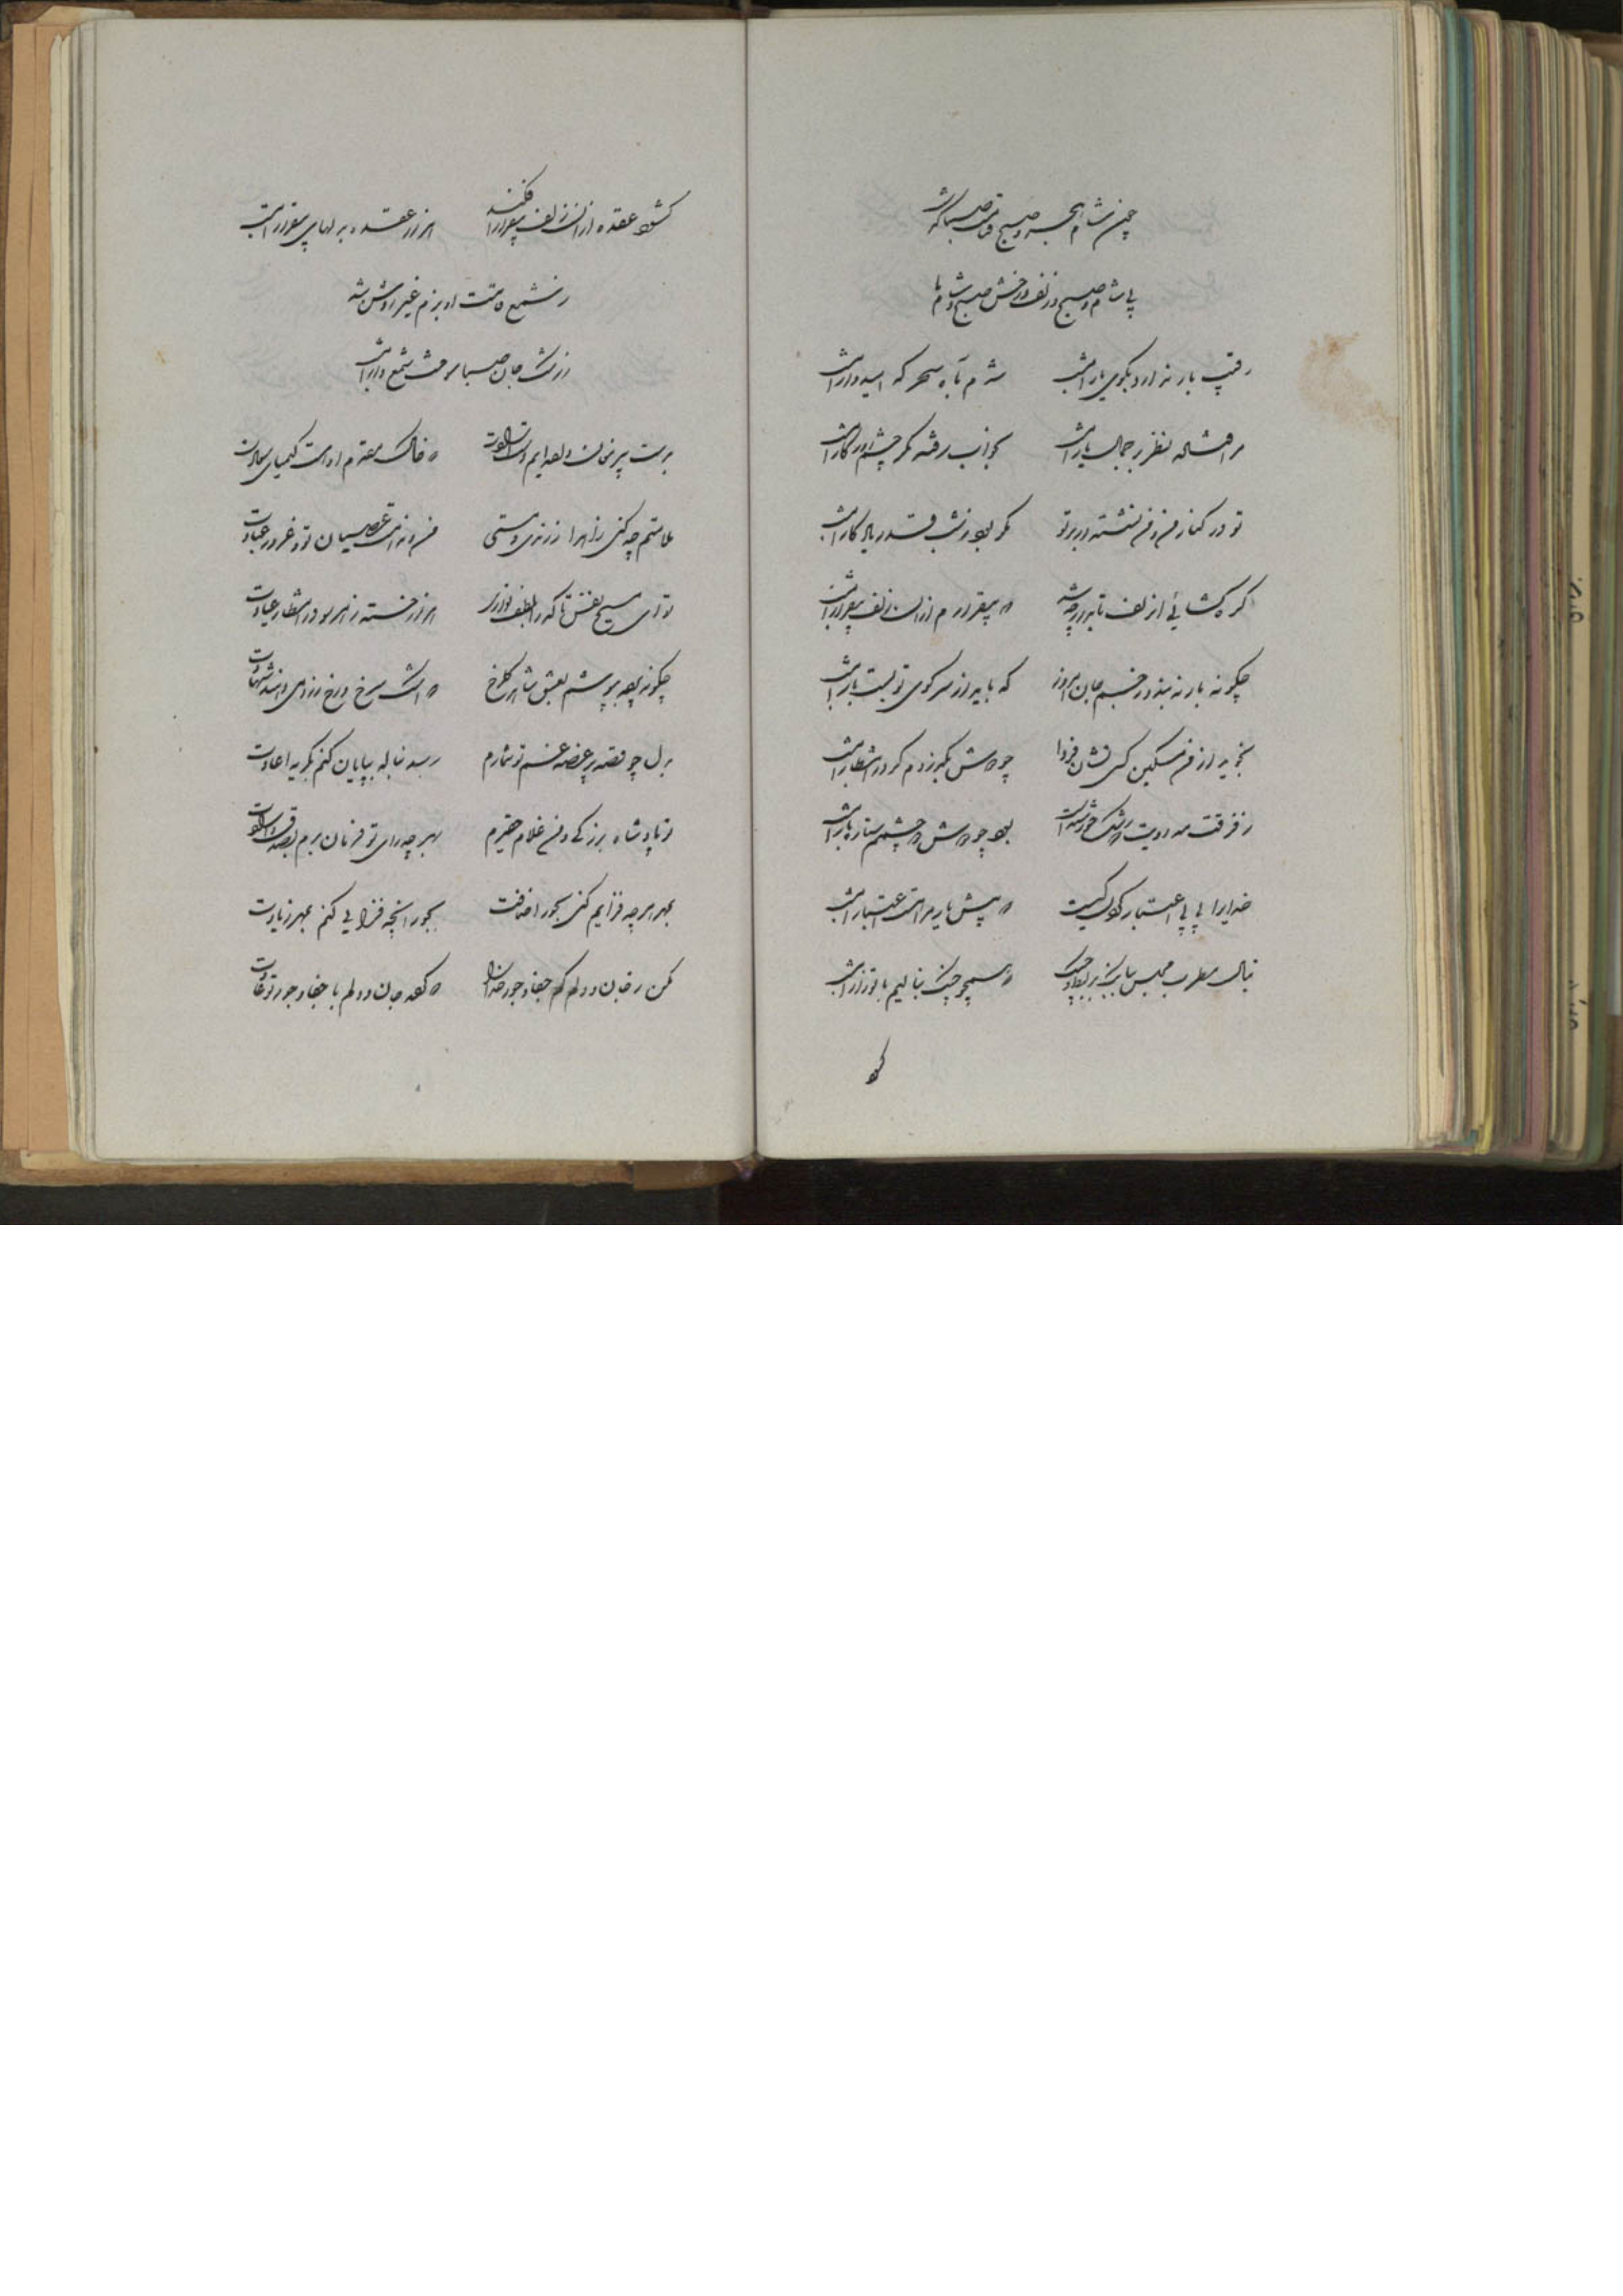 چنین شام هجر و صبح صبا که
بی شام و صبح زلف و رخش صبح و شام ما
رقیب بار ندارد بکوی یار امشب شدم تا سحر که امیدوار امشب
مرا فتاده نظر بر جمال یار امشب بخواب رفته مگر چشم روزگار امشب
تو در کنار من و من نشسته در بر تو مگر بود ز شب قدر یادگار امشب
گره گشائی از زلف تابدار چه شد که بیقرارم از آن زلف بیقرار امشب
چگونه بار نه بندد ز جسم جان امروز که یار از سر کوی تو بست بار امشب
نجوید از من مسکین کسی نشان فردا چو دوش بگذردم گر در انتظار امشب
ز فرقت مه رویت که رشک خورشید است بود چو دوش دو چشمم ستاره بار امشب
خدایرا پی بی اعتبار کیست که پیش یار مرا هست اعتبار امشب
بنال مطرب مجلس که همچو چنگ بنالیم با تو زار امشب
گشود
گشود عقده از آن زلف بیقرار افکند هزار عقده به دلهای بیقرار امشب
ز شمع دوست او بزم غیر روشن شد
ز رشک جان صبا سوخت شمع وار امشب
به پیر مغان داده ایم دست ارادت که خاک مقدم او هست کیمیای سعادت
ملامتم چه کنی زاهدا ز رندی و مستی من و ندامت عصیان تو و غرور عبادت
تو ای مسیح نفس تا که را بلطف نوازی هزار خسته ز هر سو در انتظار عیادت
چگونه عشق شاهد گلرخ که اشک سرخ و رخ زرد می دهند شهادت
بدل چو قصه پر غصه غمم تو شمارم رسد بناله بپایان کنم بگریه اعادت
تو پادشاه بزرگی و من غلام حقیرم بهر چه رای تو فرمان برم
بمهر هر چه فزایم کنی بجور اضافت بجور آنچه فزایی کنم بمهر زیادت
مکن ز جان و دلم کم جفا و جور خدا را که کرده جان و دلم با جفا و جور تو عادت